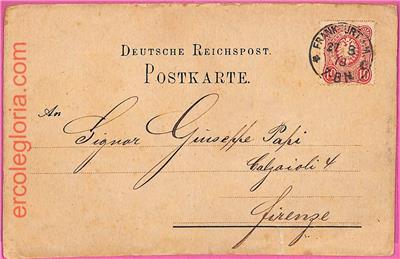 ercolegloria.com
DEUTSCHE REICHSPOST.
POSTKARTE.
FRANKFURT A.M.
An
Signor Giuseppe Papi
Calzaioli 4
Firenze